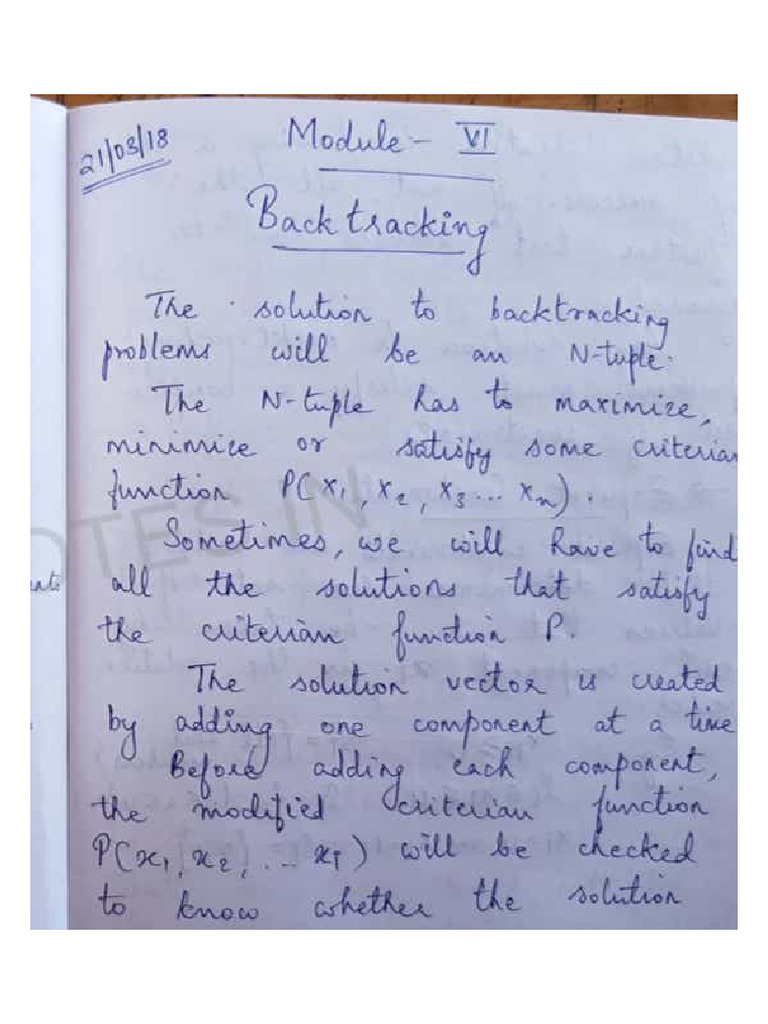 21/03/18
Module - VI
Backtracking
The solution to backtracking
problems will be an N-tuple.
The N-tuple has to maximize,
minimize or satisfy some criterian
function P(x1, x2, x3 ... xn).
Sometimes, we will have to find
all the solutions that satisfy
the criterian function P.
The solution vector is created
by adding one component at a time
Before adding each component,
the modified criterian function
P(x1, x2, ... xi) will be checked
to know whether the solution
OTES IN